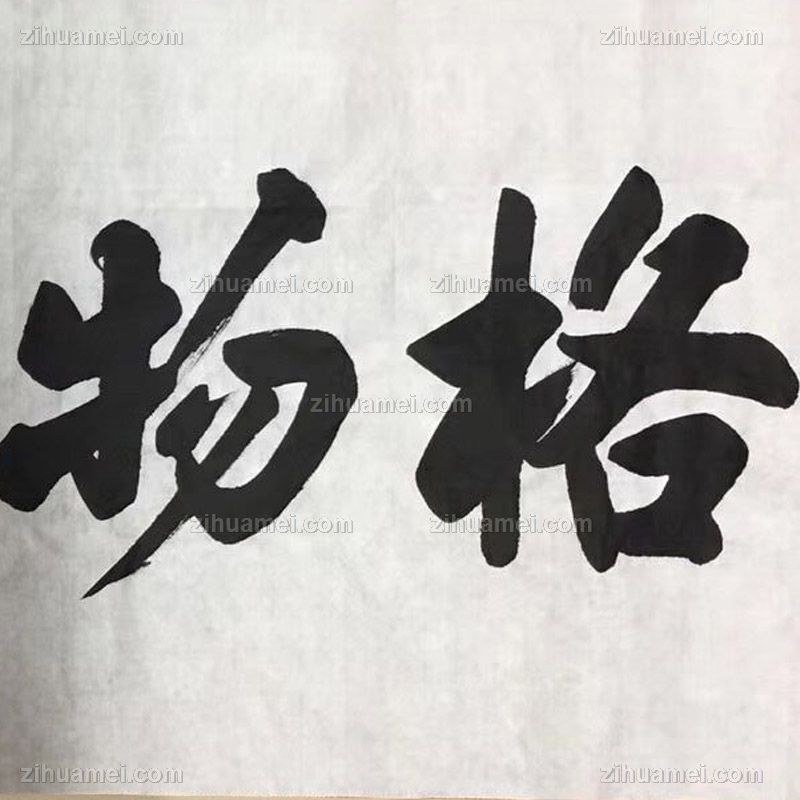 zihuamei.com zihuamei.com
格物
zihuamei.com zihuamei.com
zihuamei.com
zihuamei.com zihuamei.com
zihuamei.com zihuamei.com